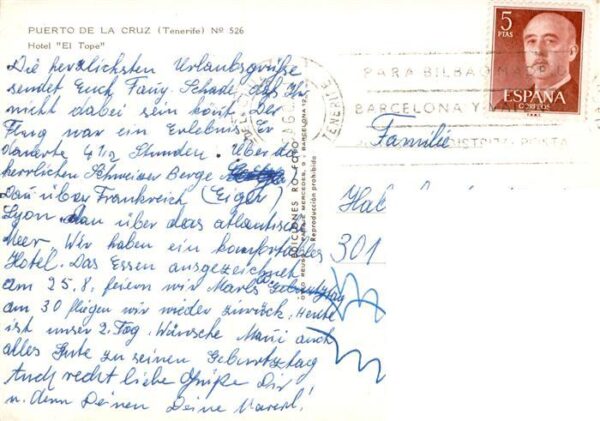 PUERTO DE LA CRUZ (Tenerife) Nº 526
Hotel "El Tope"
Die herzlichsten Urlaubsgrüße
sendet Euch Schade, das Ihr
nicht dabei sein könnt. Der
Flug war ein Erlebnis er
dauerte 4 1/2 Stunden. Über die
herrlichen Schweizer Berge
Dan über Frankreich (Eiger)
Lyon dan über das atlantische
Meer. Wir haben ein komfortables
Hotel. Das Essen ausgezeichnet
am 25.8. feiern wir Geburtztag
am 30 fliegen wir wieder zurück. Heute
ist unser 2. Tag. Wünsche auch
alles Gute zu seinen Geburtztag
Auch recht liebe Grüße Dir
u. denn Deinen Deine
EDICIONES RO-FOTO
BARCELONA
Reproducción prohibida
5
PTAS
ESPAÑA
CORREOS
PARA BILBAO
BARCELONA Y
DISTRITO POSTAL
TENERIFE
Familie
301